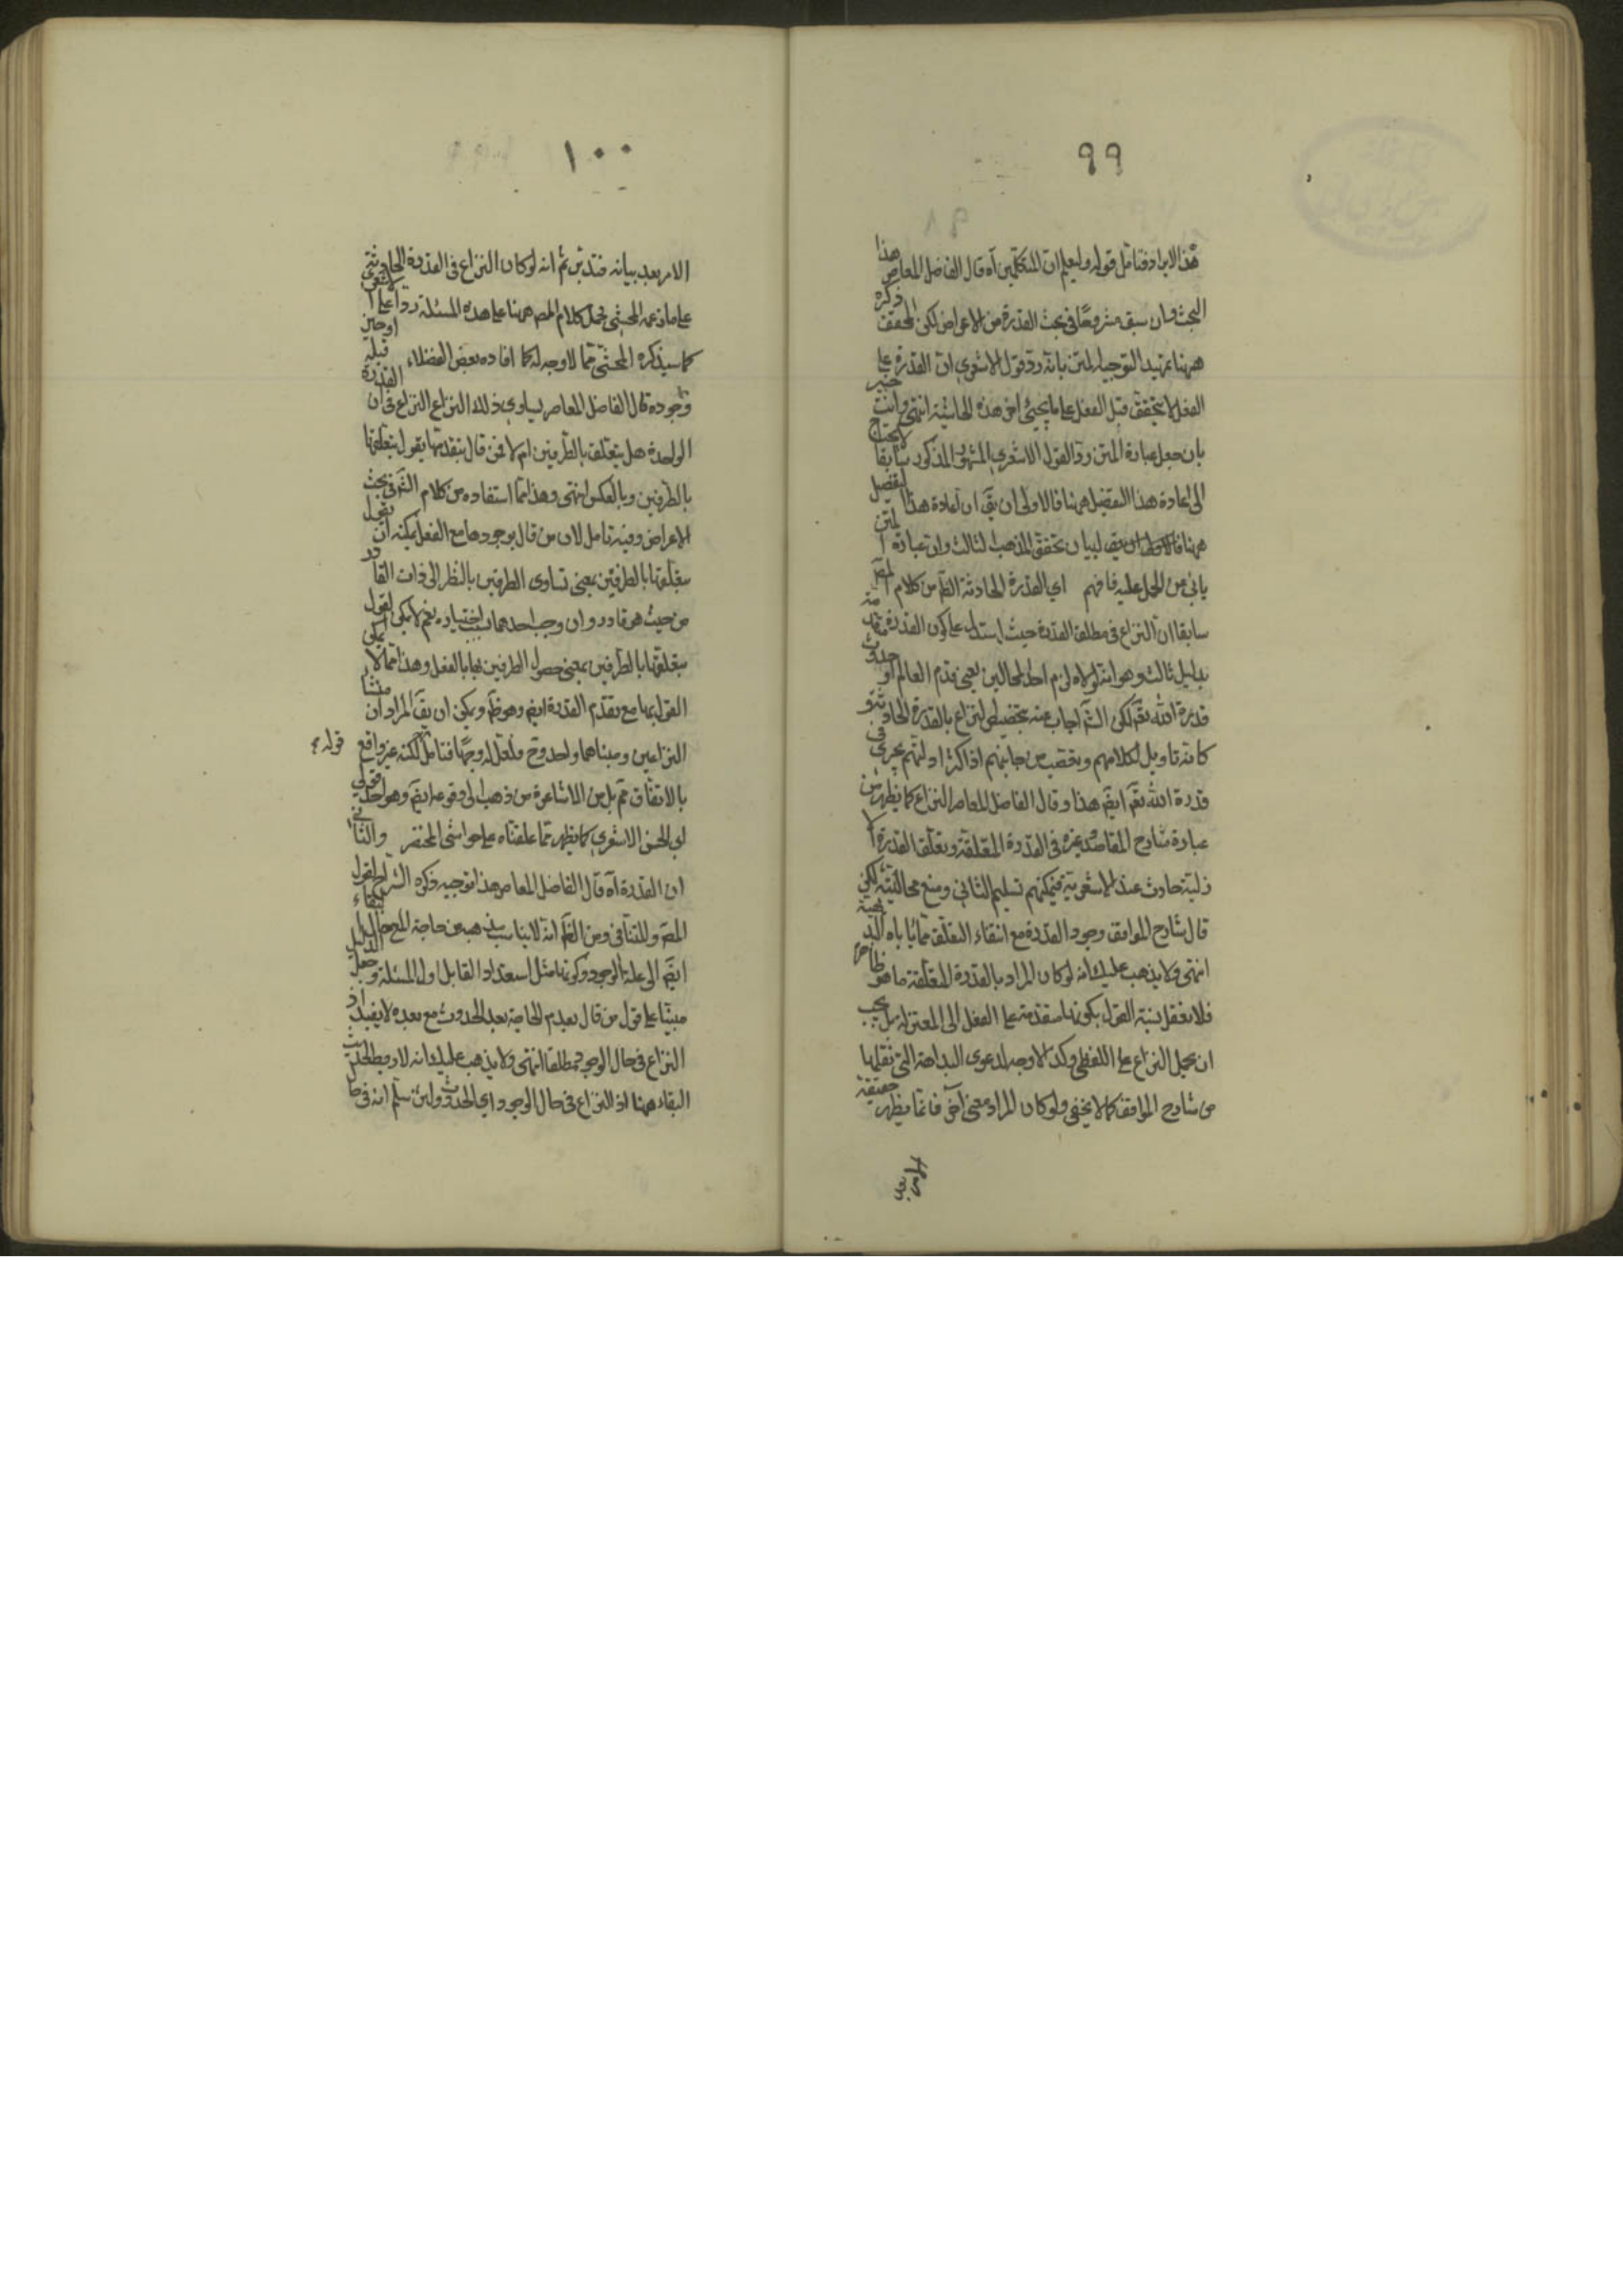 ٩٩
هذا الايراد فتأمل قوله وليعلم ان المتكلمين آه قال الفاضل المعاصر هذا
البحث وان سبق مشروحًا فى بحث القدرة من الاعراض لكن المحقق ذكره
ههنا تمهيدا لتوجيه المتن بانه رد قول الاشعري ان القدرة على
الفعل لا يتحقق قبل الفعل على ما يجيئ فى هذه الحاشية انتهى وانت خبير
بان جعل عبارة المتن ردّا لقول الاشعري المذكور سابقا لا يحتاج
الى اعادة هذا التفصيل ههنا فالاولى ان يقَ ان اعادة هذا التفصيل
ههنا لبيان تحقق المذهب الثالث وان عبارة المتن
يابى عن الحمل عليه فافهم اي القدرة الحادثة الظَ من كلام المصَ
سابقا ان النزاع فى مطلق القدرة حيث استدل على كون القدرة متقدمة
بدليل ثالث وهو انه لولاه لزم احد المحالين يعنى قدم العالم او حدوث
قدرة الله تعَ لكن الشَ اجاب عنه بتخصيص النزاع بالقدرة الحادثة و
كانه تاويل لكلامهم وتعصب من جانبهم اذ اكثر ادلتهم يجرى فى
قدرة الله تعَ ايضَ هذا وقال الفاضل المعاصر النزاع كما يظهر من
عبارة شارح المقاصد وغيره فى القدرة المتعلقة وتعلق القدرة الا
زلية حادث عند الاشعرية فيمكنهم تسليم الثانى ومنع محاليته لكن
قال شارح المواقف وجود القدرة مع انتفاء التعلق مما ياباه البديهة
انتهى ولا يذهب عليك انه لو كان المراد بالقدرة المتعلقة ما هو ظاهر
فلا تعقل نسبة القول بكونها متقدمة على الفعل الى المعتزلة بل يجب
ان يحمل النزاع على اللفظى وكذا لا وجه لدعوى البداهة التى نقلها
من شارح المواقف كما لا يخفى ولو كان المراد معنى آخر فانما يظهر حقيقة
الامر بعد
١٠٠
الامر بعد بيانه فتدبر ثم انه لو كان النزاع فى القدرة الحادثة
على ما زعمه المحشى فحمل كلام المصَ ههنا على هذه المسئلة ردا على الاشعرى
كما سيذكره المحشى مما لا وجه له كما افاده بعض الفضلاء او حين
وجوده قال الفاضل المعاصر يساوي ذلك النزاع النزاع فى ان القدرة
الواحدة هل يتعلق بالطرفين ام لا فمن قال بتقدمها يقول بتعلقها
بالطرفين وبالعكس انتهى وهذا مما استفاده من كلام الشَ فى بحث
الاعراض وفيه تامل لان من قال بوجودها مع الفعل يمكنه ان يقول
بتعلقها بالطرفين بمعنى تساوى الطرفين بالنظر الى ذات القادر
من حيث هو قادر وان وجب احدهما بسبب اختياره نعم لا يمكن القول
بتعلقها بالطرفين بمعنى حصول الطرفين بها بالفعل وهذا مما لا يمكن
القول بها مع تقدم القدرة ايضَ وهو ظَ ويمكن ان يقَ المراد ان منشأ
النزاعين ومبناهما واحد وح فلعل له وجهًا فتامل لكنه غير واقع قوله
بالاتفاق مم بل من الاشاعرة من ذهب الى وقوعه ايضَ وهو احد قولى
ابي الحسن الاشعري كما يظهر مما علقناه على حواشى المختصر والثانى
ان القدرة آه قال الفاضل المعاصر هذا توجيه ذكره الشارح لقول
المصَ وللتنافى ومن الظَ انه لا يناسب مذهب من حاجة البقاء
ايضَ الى علة الوجود وكونها مثل استعداد القابل اول المسئلة وجعل الدليل
مبنيًا على قول من قال بعدم الحاجة بعد الحدوث مع بعده لا يفيد اذ
النزاع فى حال الوجود مطلقا انتهى ولا يذهب عليك انه لا دخل لحديث
البقاء ههنا اذ النزاع فى حال الوجود اي الحدوث ولئن سلم انه فى حا